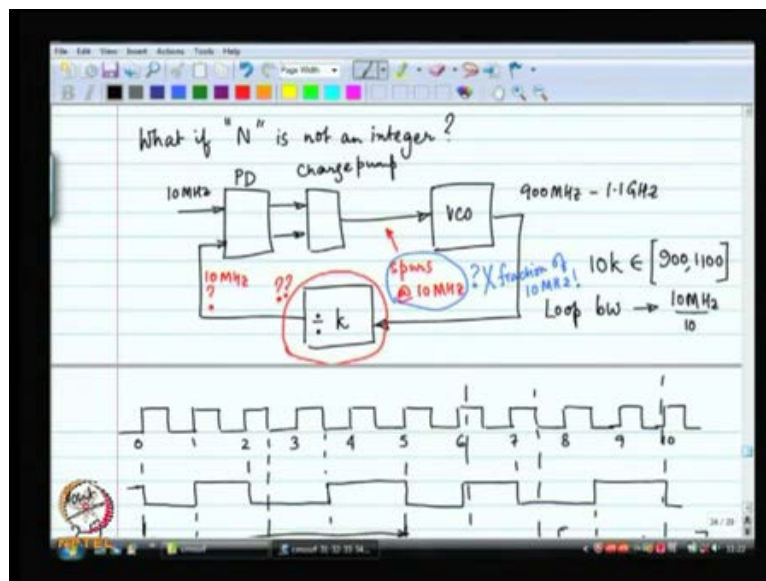 File Edit View Insert Actions Tools Help
Page Width
B I
What if "N" is not an integer?
PD
chargepump
10MHz
VCO
900MHz - 1.1GHz
10MHz
?
??
÷ k
spurs
@ 10MHz
? X fraction of
10MHz!
10k ∈ [900,1100]
Loop bw → 10MHz
10
0 1 2 3 4 5 6 7 8 9 10
NPTEL
13:22